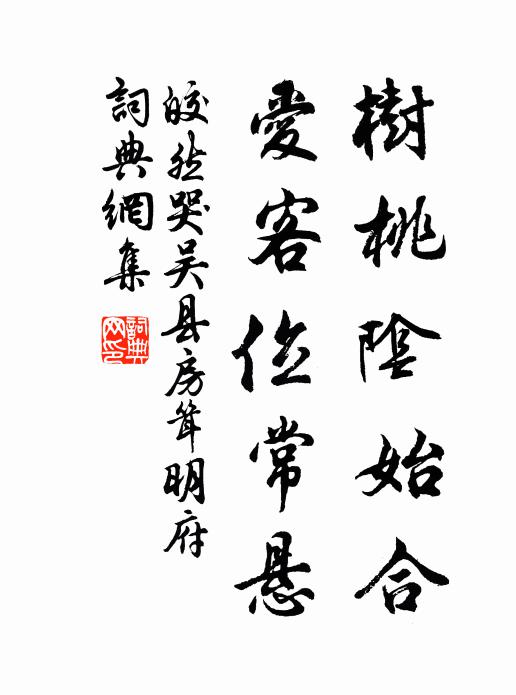 樹桃陰始合
愛客位常悬
皎然哭吴县房耸明府
詞典網集
詞典网印